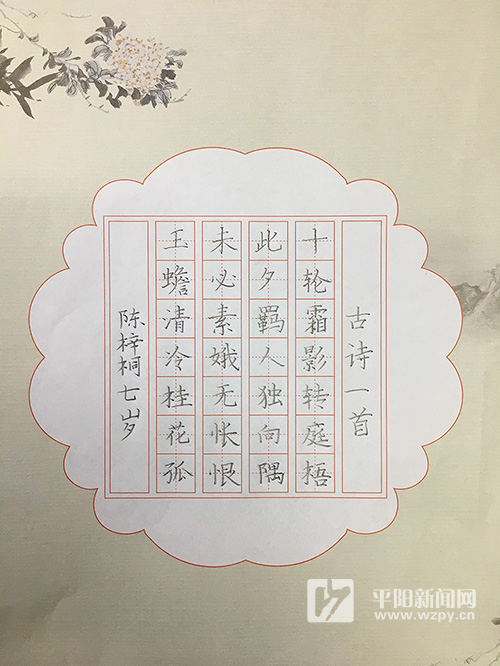 古诗一首
十轮霜影转庭梧
此夕羁人独向隅
未必素娥无怅恨
玉蟾清冷桂花孤
陈梓桐七岁
平阳新闻网
www.wzpy.cn